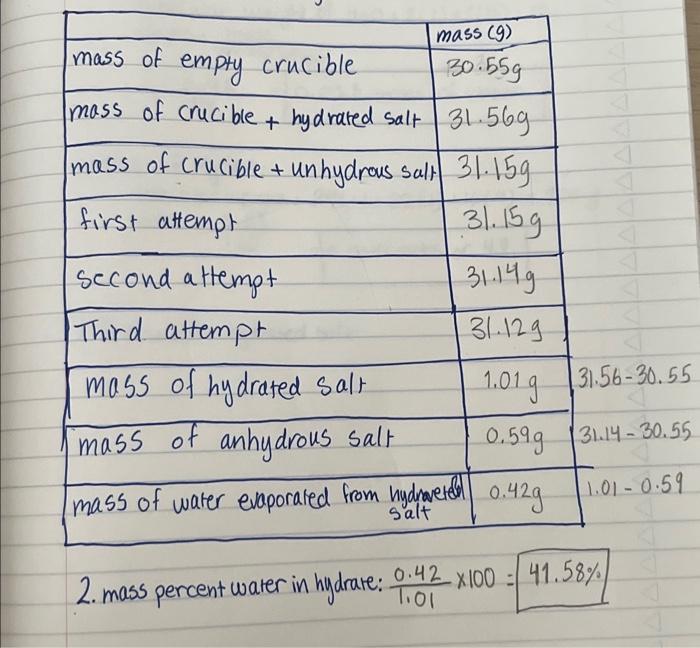 mass (g)
mass of empty crucible 30.55g
mass of crucible + hydrated salt 31.56g
mass of crucible + unhydrous salt 31.15g
first attempt 31.15g
second attempt 31.14g
Third attempt 31.12g
mass of hydrated salt 1.01g 31.56-30.55
mass of anhydrous salt 0.59g 31.14-30.55
mass of water evaporated from 0.42g 1.01-0.59
salt
2. mass percent water in hydrate: 0.42/1.01 x100 = 41.58%